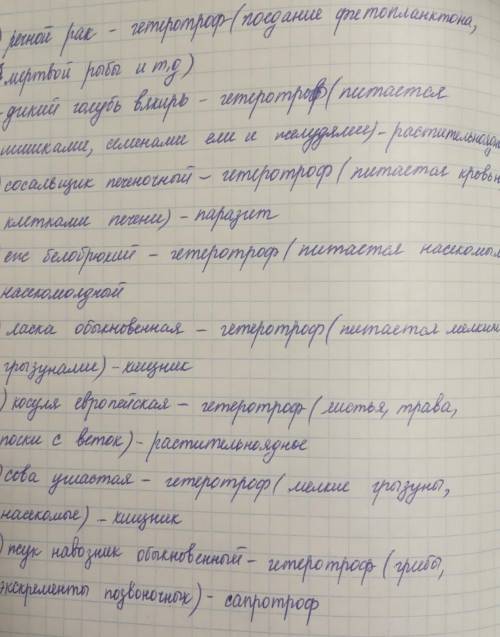 ) речной рак – гетеротроф (поедание фитопланктона,
мертвой рыбы и т.д)
- дикий голубь вяхирь – гетеротроф (питается
шишками, семенами ели и желудями) – растительнояд
) сосальщик печеночный – гетеротроф (питается кровью
клетками печени) – паразит
) еж белобрюхий – гетеротроф (питается насекомым
насекомоядный
) ласка обыкновенная – гетеротроф (питается мелким
грызунами) – хищник
) косуля европейская – гетеротроф (листья, трава,
почки с веток) – растительноядное
) сова ушастая – гетеротроф (мелкие грызуны,
насекомые) – хищник
) жук навозник обыкновенный – гетеротроф (грибы,
экскременты позвоночных) – сапротроф